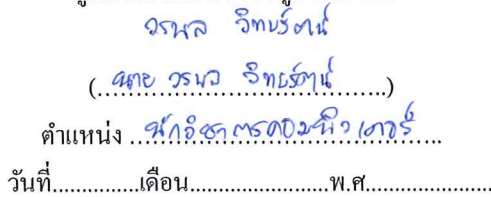 วรพล วิทยรัตน์
(นาย วรพล วิทยรัตน์)
ตำแหน่ง นักวิชาการคอมพิวเตอร์
วันที่..............เดือน.......................พ.ศ.....................